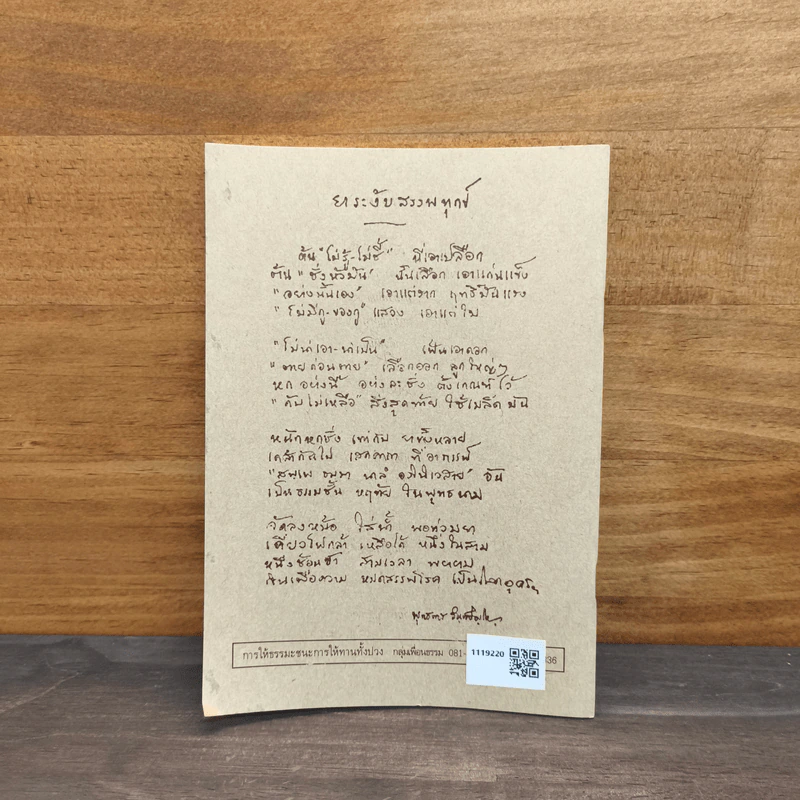 ยาระงับสรรพทุกข์
ต้น "ไม่รู้-ไม่ชี้" นี่เอาเปลือก
ต้น "ชั่งหัวมัน" นั้นเลือก เอาแก่นแข็ง
"อย่างนั้นเอง" เอาแต่ราก ฤทธิ์มันแรง
"ไม่มีกู-ของกู" แสวง เอาแต่ใบ
"ไม่น่าเอา-น่าเป็น" เฟ้นเอาดอก
"ตายก่อนตาย" เลือกออก ลูกใหญ่ๆ
หก อย่างนี้ อย่างละชั่ง ตั้งเกณฑ์ไว้
"ดับไม่เหลือ" สิ่งสุดท้าย ใช้เมล็ดมัน
หนักหกชั่ง เท่ากับ ยาทั้งหลาย
เคล้ากันไป เสกคาถา ที่อาถรรพ์
"สพฺเพ ธมฺมา นาลํ อภินิเวสาย" อัน
เป็นธรรมชั้น หฤทัย ในพุทธนาม
จัดลงหม้อ ใส่น้ำ พอท่วมยา
เคี่ยวไฟกล้า เหลือได้ หนึ่งในสาม
หนึ่งช้อนชา สามเวลา พยายาม
กินเพื่อความ หมดสรรพโรค เป็นโลกอุดรฯ
พุทธทาส อินทปัญโญ
การให้ธรรมะชนะการให้ทานทั้งปวง กลุ่มเพื่อนธรรม 081-
1119220
36